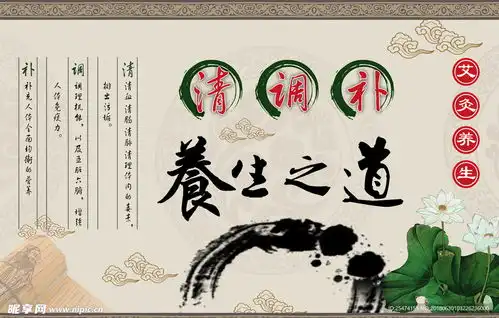 清调补
養生之道
艾灸养生
清 清血清肠清肠清理体内的毒素，
排出污垢。
调 调理机能，以及五脏六腑，增强
人体免疫力。
补 补充人体全面均衡的营养
昵享网
www.nipic.cn